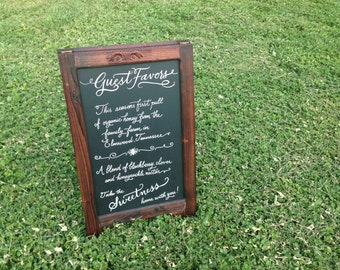 Guest Favors
This seasons first pull
of organic honey from the
family farm in
Tennessee
A blend of blackberry clover
and honeysuckle nectar
Take the
Sweetness
home with you!